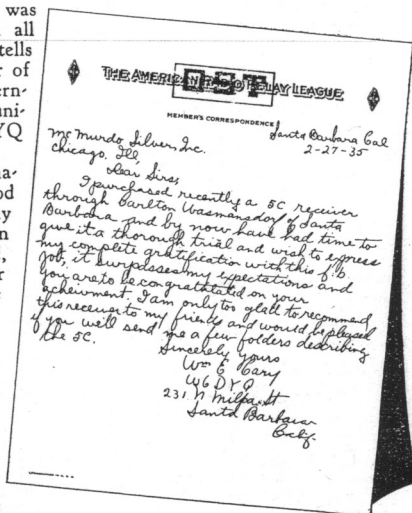 was
all
tells
of
ern-
uni-
YQ
na-
od
y
n
,
r
THE AMERICAN RADIO RELAY LEAGUE
QST
MEMBER'S CORRESPONDENCE
Santa Barbara Cal
2-27-35
McMurdo Silver, Inc.
Chicago, Ill.
Dear Sirs;
I purchased recently a 5C receiver
through Carlton Wasmansdorf of Santa
Barbara and by now have had time to
give it a thorough trial and wish to express
my complete gratification with this f.b
job, it surpasses my expectations and
you are to be congratulated on your
acheivment. I am only too glad to recommend
this receiver to my friends and would be pleased
if you will send me a few folders describing
the 5C.
Sincerely yours
Wm E Cary
W6DYQ
231 N Milpas St
Santa Barbara
Calif.